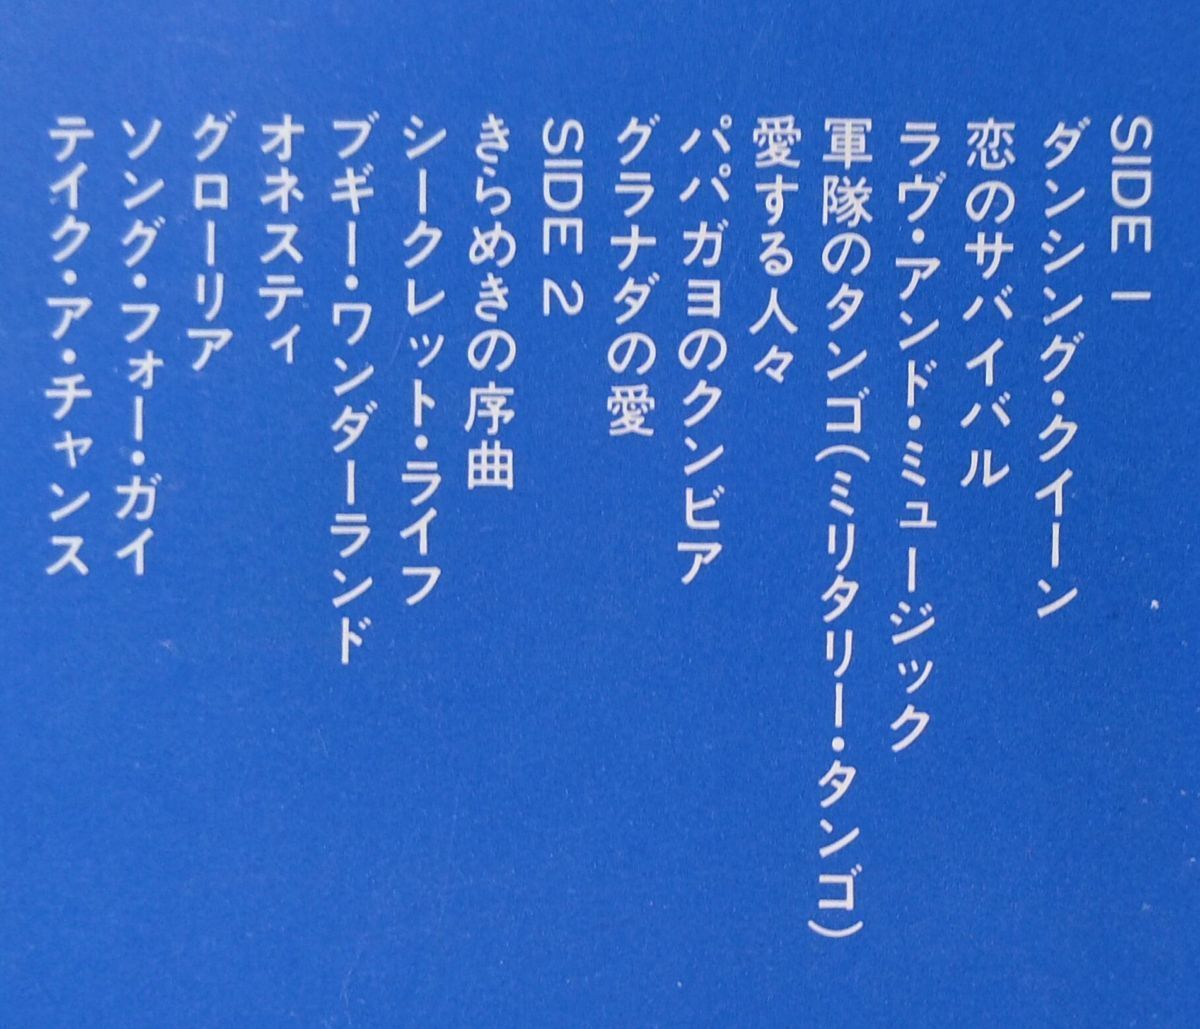 SIDE 1
ダンシング・クイーン
恋のサバイバル
ラヴ・アンド・ミュージック
軍隊のタンゴ(ミリタリー・タンゴ)
愛する人々
パパガヨのクンビア
グラナダの愛
SIDE 2
きらめきの序曲
シークレット・ライフ
ブギー・ワンダーランド
オネスティ
グローリア
ソング・フォー・ガイ
テイク・ア・チャンス